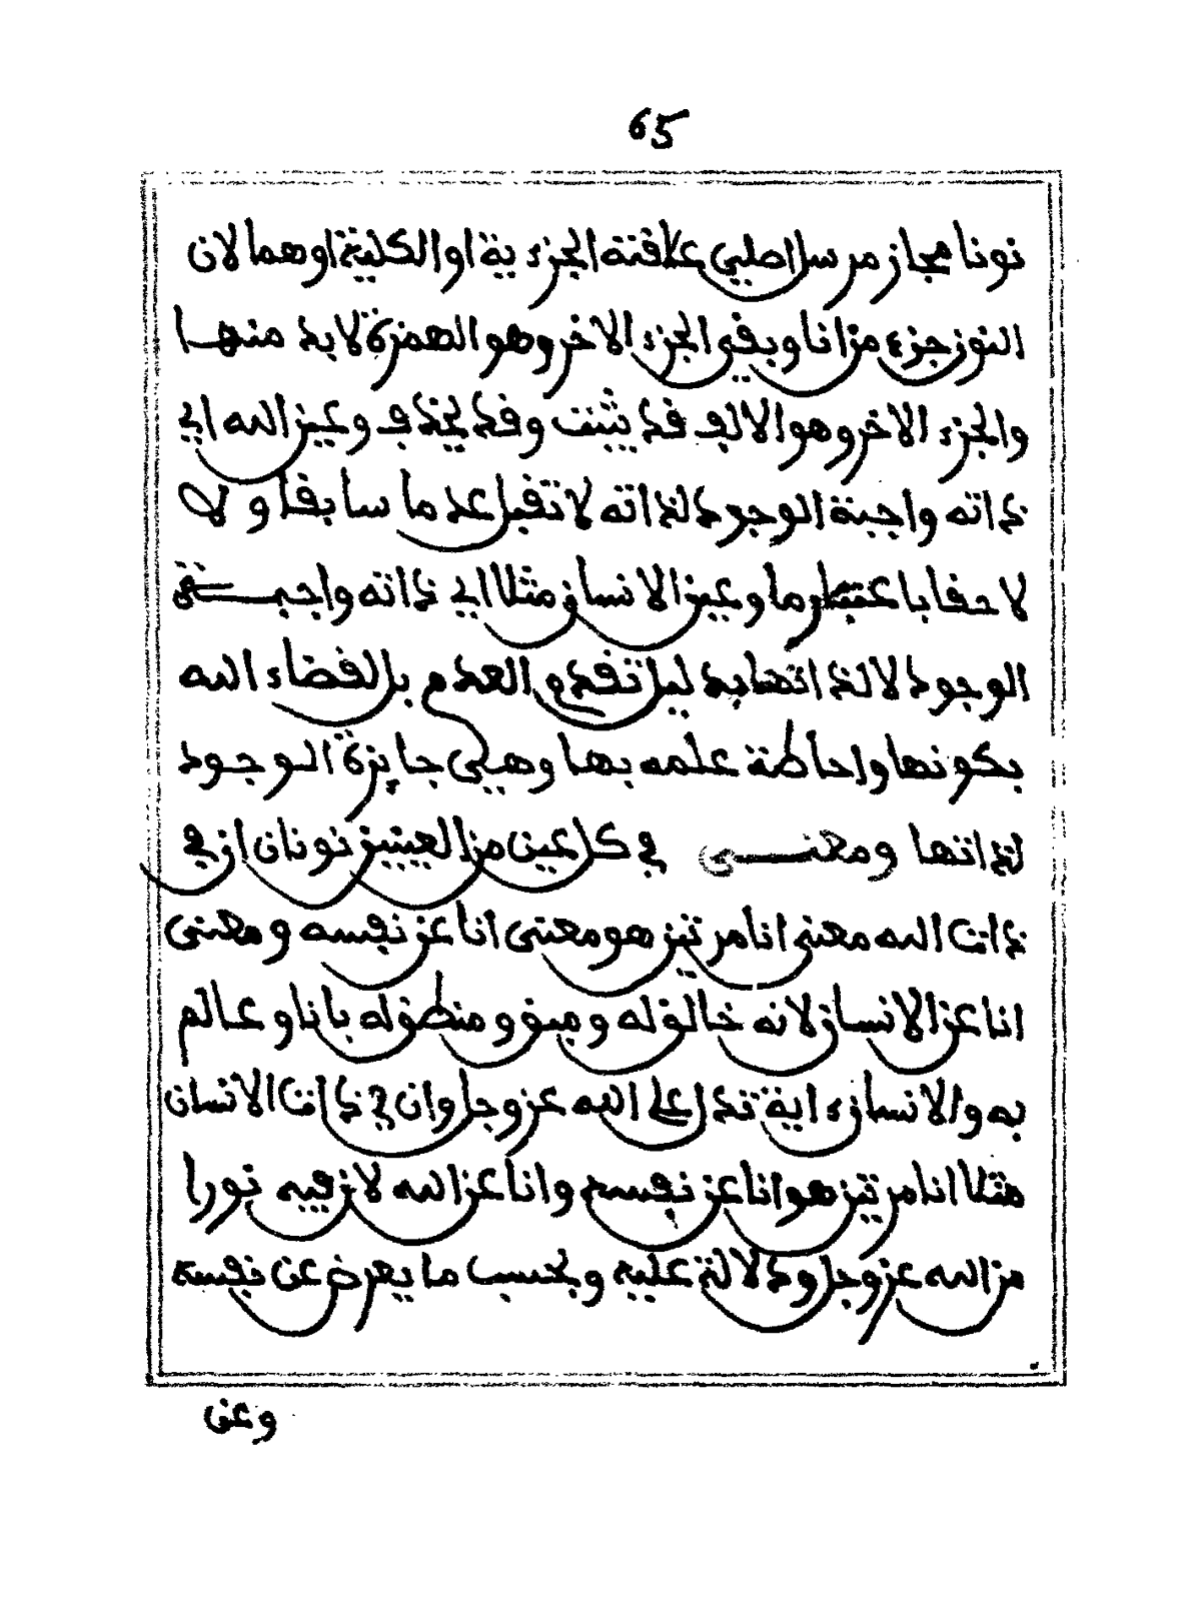 65
نونا مجاز مرسل اصلي علاقته الجزءية او الكلية او هما لان
النون جزء من انا وبقي الجزء الاخر وهو الهمزة لا بد منها
والجزء الاخر وهو الالف قد يثبت وقد يحذف وعين الله اي
ذاته واجبة الوجود لذاته لا تقبل عدما سابقا ولا
لاحقا باعتبار ما وعين الانسان مثلا اي ذاته واجبة
الوجود لا لذاتها بدليل تقدم العدم بل لقضاء الله
بكونها واحاطة علمه بها وهي جايزة الوجود
لذاتها ومعنى في كل عين من العينين نونان ان في
ذات الله معنى انا مرتين هو معنى انا عن نفسه ومعنى
انا عن الانسان لانه خالق له ومبق ومنطق له بانا وعالم
به والانسان ءاية تدل على الله عز وجل وان في ذات الانسان
مثلا انا مرتين هو انا عن نفسه وانا عن الله لان فيه نورا
من الله عز وجل ودلالة عليه وبحسب ما يعرض عن نفسه
وعن